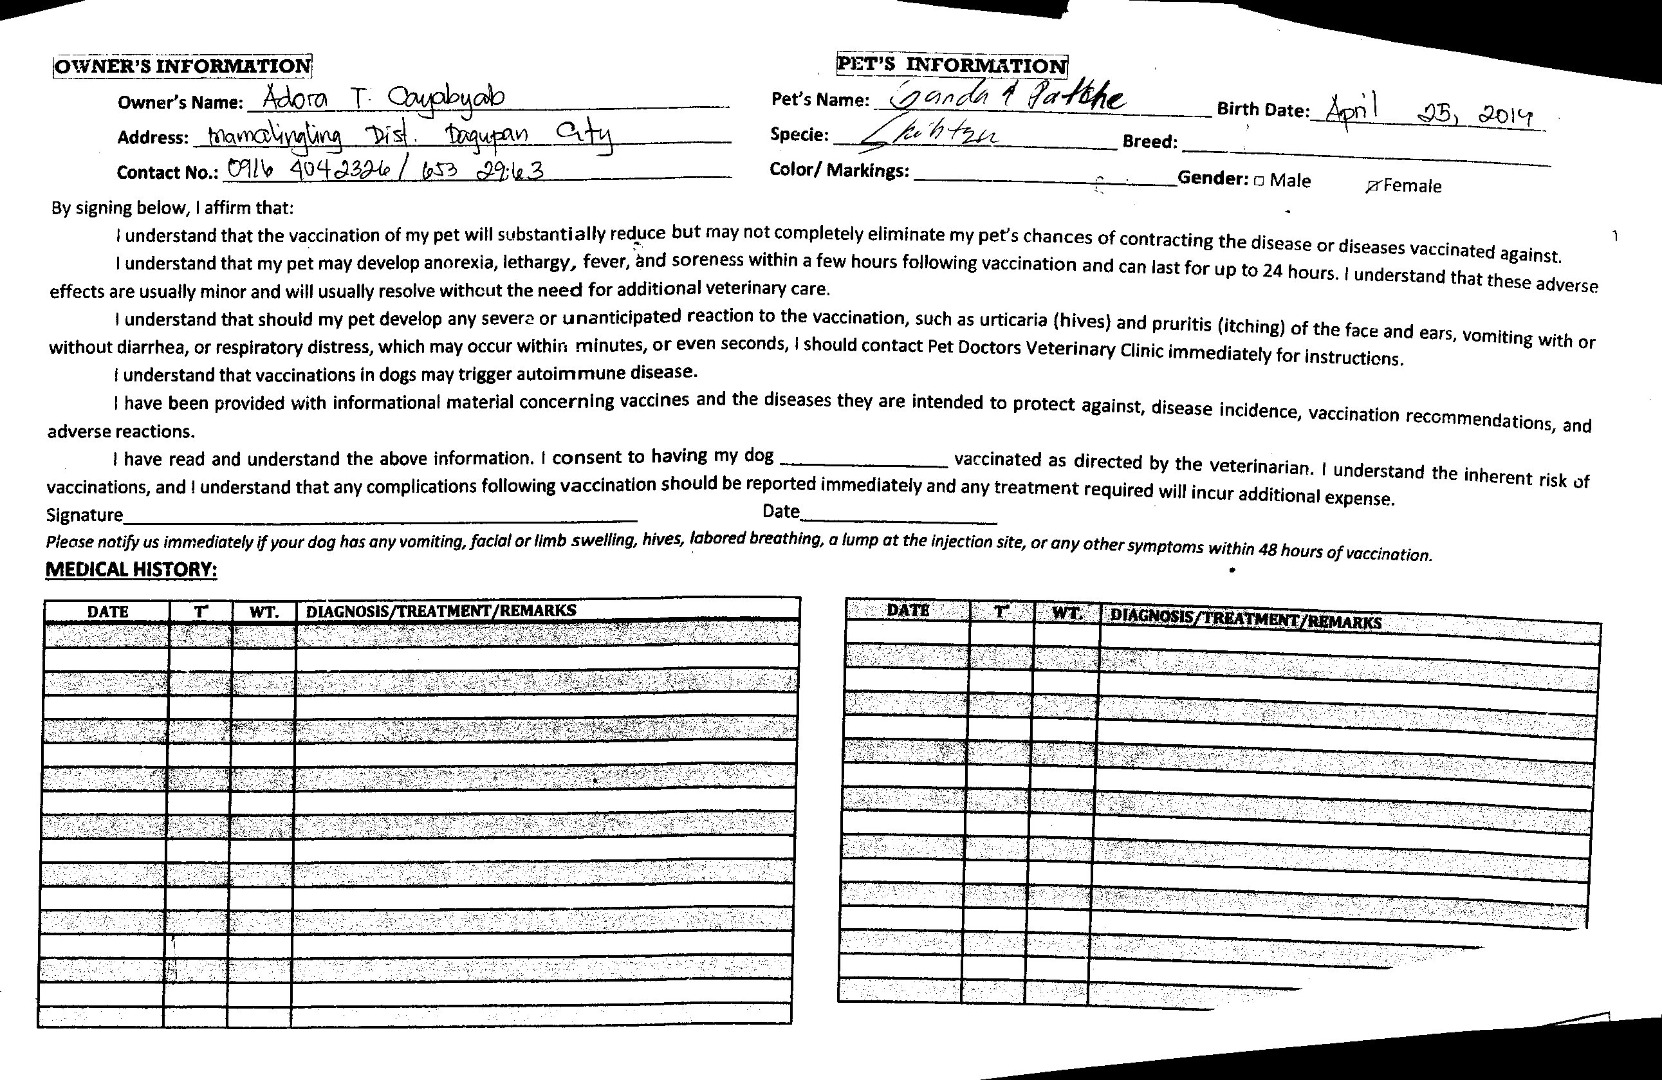 OWNER'S INFORMATION
Owner's Name: Adora T. Cayabyab
Address: Mamalingling Dist. Dagupan City
Contact No.: 0916 4042326 / 653 2963
PET'S INFORMATION
Pet's Name: Ganda & Patche Birth Date: April 25, 2019
Specie: Shihtzu Breed:
Color/ Markings: Gender: Male Female
By signing below, I affirm that:
I understand that the vaccination of my pet will substantially reduce but may not completely eliminate my pet's chances of contracting the disease or diseases vaccinated against.
I understand that my pet may develop anorexia, lethargy, fever, and soreness within a few hours following vaccination and can last for up to 24 hours. I understand that these adverse
effects are usually minor and will usually resolve without the need for additional veterinary care.
I understand that should my pet develop any severe or unanticipated reaction to the vaccination, such as urticaria (hives) and pruritis (itching) of the face and ears, vomiting with or
without diarrhea, or respiratory distress, which may occur within minutes, or even seconds, I should contact Pet Doctors Veterinary Clinic immediately for instructions.
I understand that vaccinations in dogs may trigger autoimmune disease.
I have been provided with informational material concerning vaccines and the diseases they are intended to protect against, disease incidence, vaccination recommendations, and
adverse reactions.
I have read and understand the above information. I consent to having my dog vaccinated as directed by the veterinarian. I understand the inherent risk of
vaccinations, and I understand that any complications following vaccination should be reported immediately and any treatment required will incur additional expense.
Signature Date
Please notify us immediately if your dog has any vomiting, facial or limb swelling, hives, labored breathing, a lump at the injection site, or any other symptoms within 48 hours of vaccination.
MEDICAL HISTORY:
DATE T° WT. DIAGNOSIS/TREATMENT/REMARKS
DATE T° WT. DIAGNOSIS/TREATMENT/REMARKS